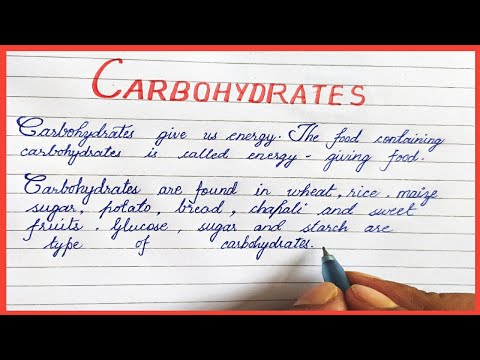 CARBOHYDRATES
Carbohydrates give us energy. The food containing
carbohydrates is called energy - giving food.
Carbohydrates are found in wheat, rice, maize
sugar, potato, bread, chapati and sweet
fruits. Glucose, sugar and starch are
type of carbohydrates.